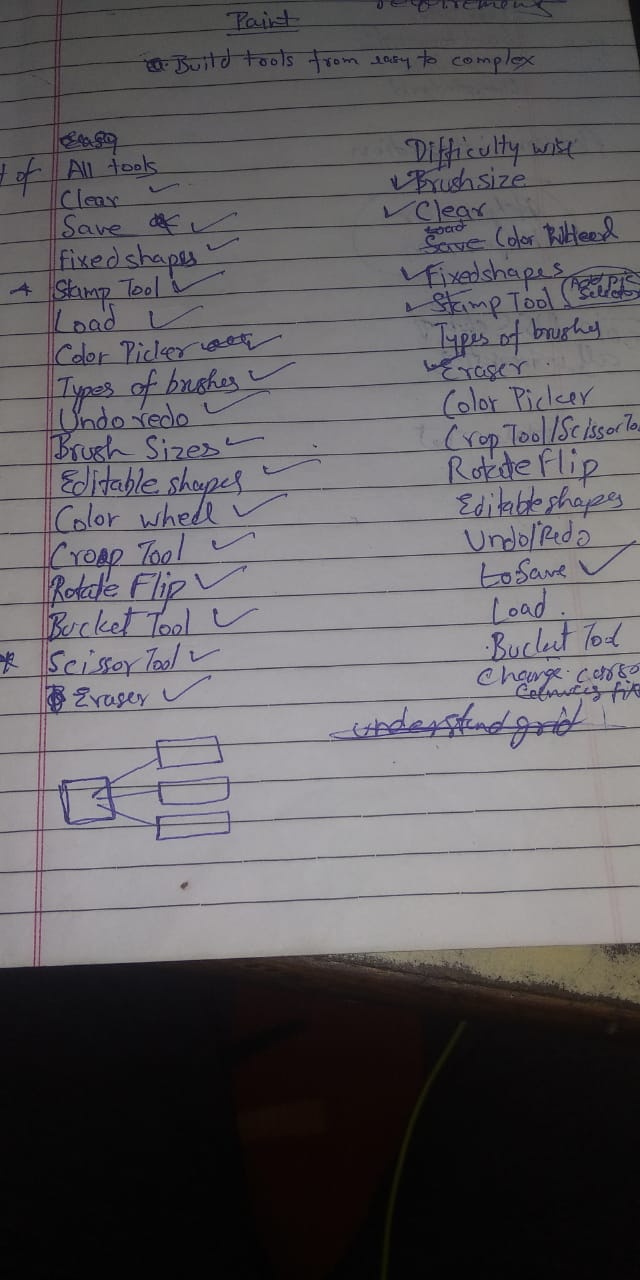 requirement
Paint
Build tools from easy to complex
Easy
of All tools
Clear
Save
Fixed shapes
Stamp Tool
Load
Color Picker
Types of brushes
Undo redo
Brush Sizes
Editable shapes
Color wheel
Crop Tool
Rotate Flip
Bucket Tool
Scissor Tool
Eraser
Difficulty wise
Brush size
Clear
Load
Save Color Wheel
Fixed shapes
Stamp Tool
Types of brushes
Eraser
Color Picker
Crop Tool/Scissor To
Rotate Flip
Editable shapes
Undo/Redo
Save
Load
Bucket Tool
Change
understand grid